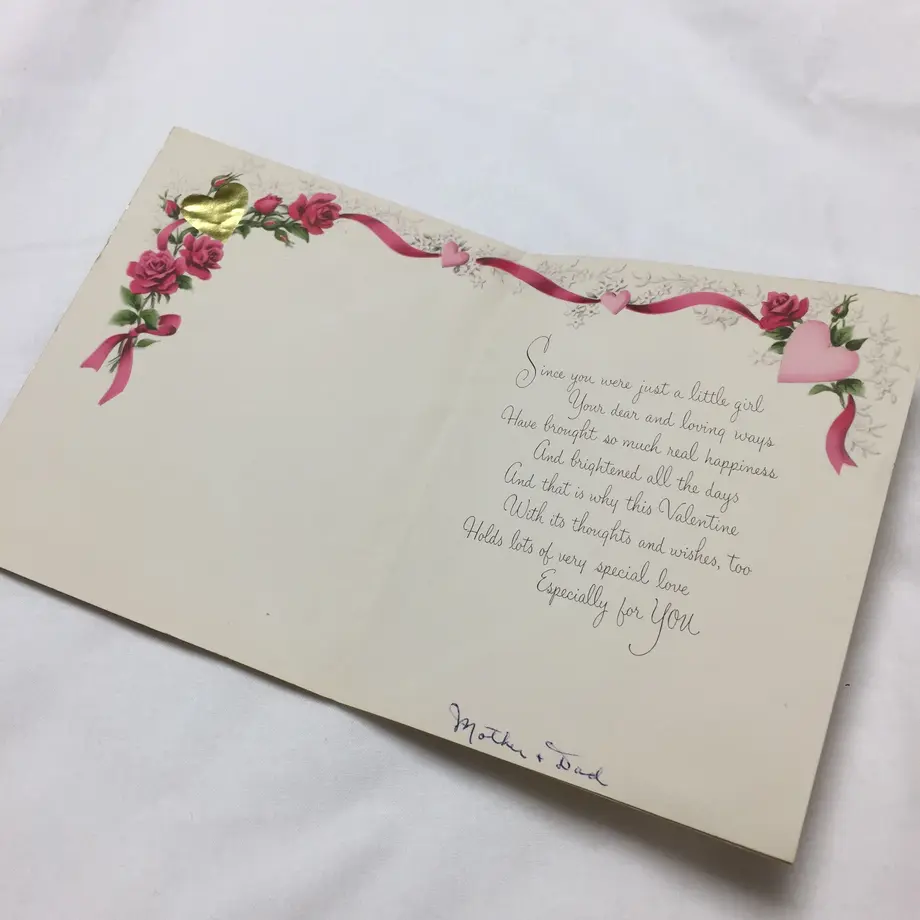 Since you were just a little girl
Your dear and loving ways
Have brought so much real happiness
And brightened all the days
And that is why this Valentine
With its thoughts and wishes, too
Holds lots of very special love
Especially for YOU
Mother + Dad